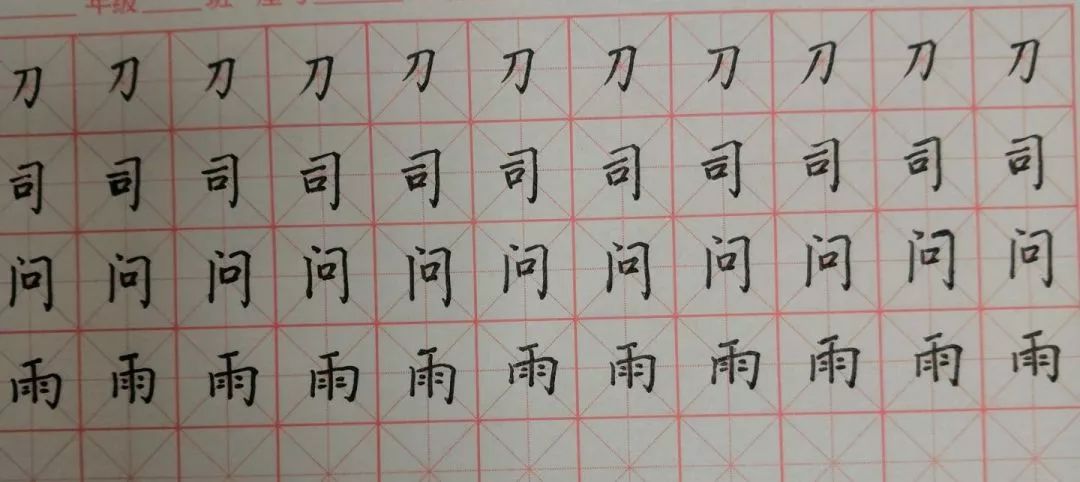 年级 班
刀刀刀刀刀刀刀刀刀刀刀
司司司司司司司司司司司
问问问问问问问问问问问
雨雨雨雨雨雨雨雨雨雨雨